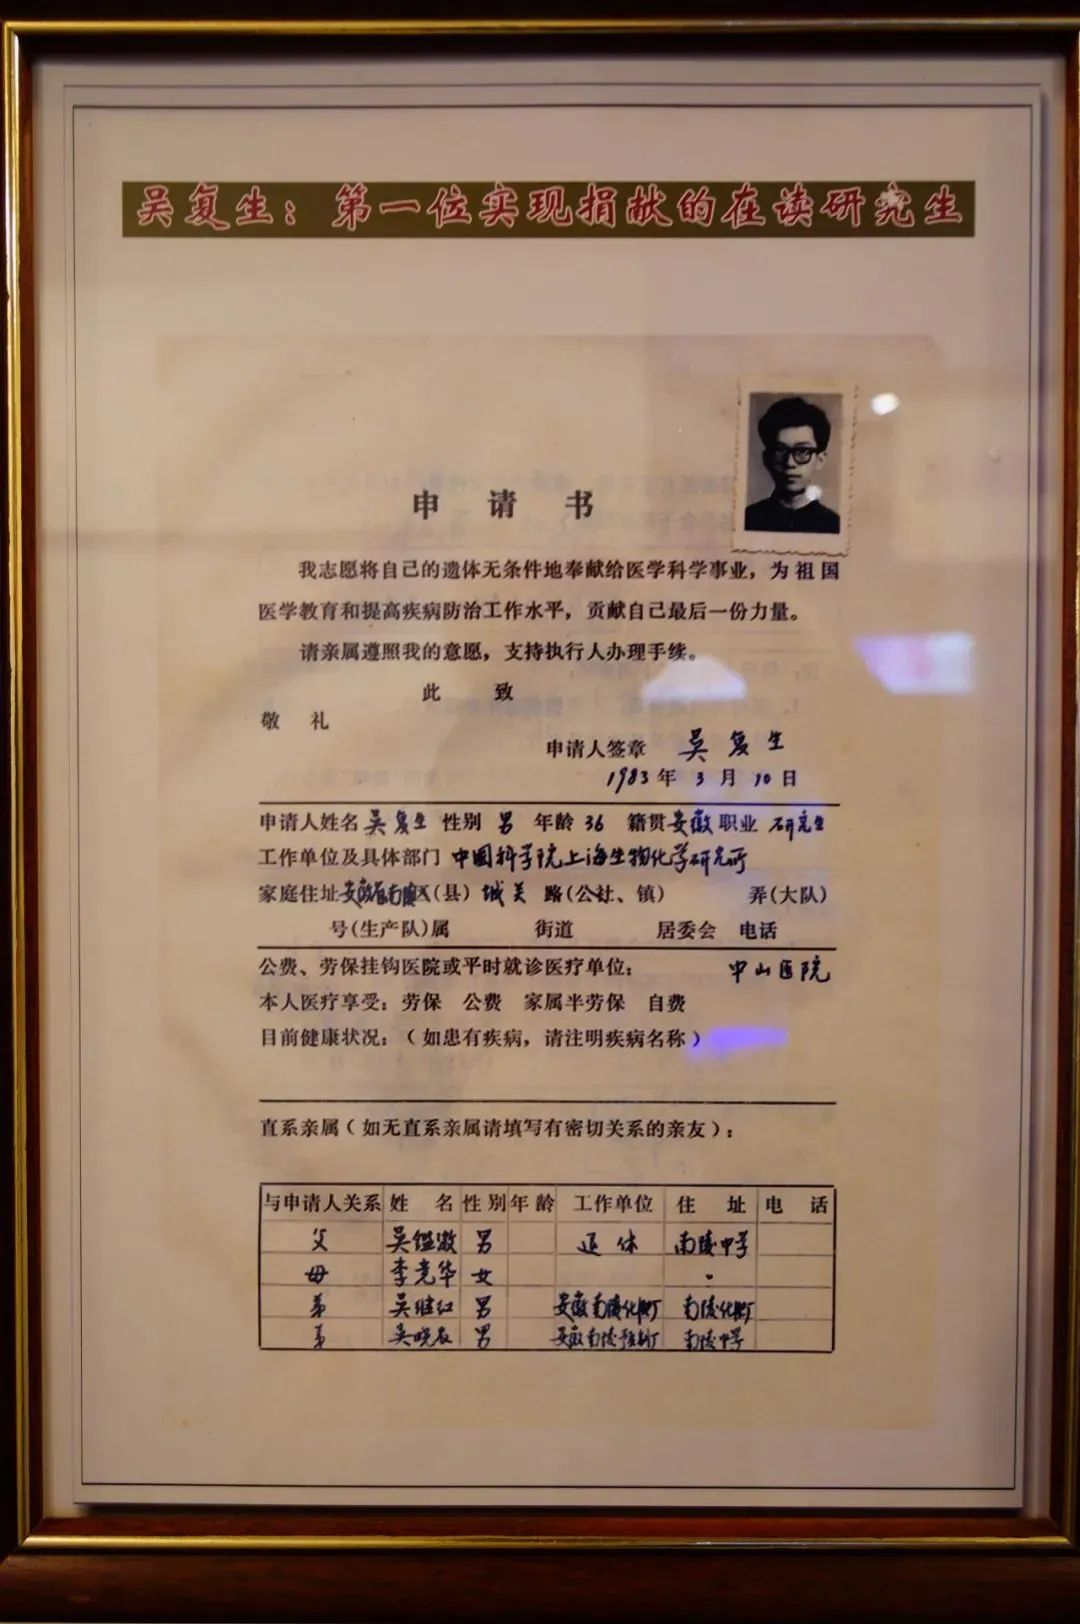 吴复生：第一位实现捐献的在读研究生
申请书
我志愿将自己的遗体无条件地奉献给医学科学事业，为祖国
医学教育和提高疾病防治工作水平，贡献自己最后一份力量。
请亲属遵照我的意愿，支持执行人办理手续。
此致
敬礼
申请人签章 吴复生
1983年3月10日
申请人姓名 吴复生 性别 男 年龄 36 籍贯 安徽 职业 研究生
工作单位及具体部门 中国科学院上海生物化学研究所
家庭住址 安徽省南陵区(县) 城关 路(公社、镇) 弄(大队)
号(生产队)属 街道 居委会 电话
公费、劳保挂钩医院或平时就诊医疗单位： 中山医院
本人医疗享受：劳保 公费 家属半劳保 自费
目前健康状况：（如患有疾病，请注明疾病名称）
直系亲属（如无直系亲属请填写有密切关系的亲友）：
与申请人关系 姓名 性别 年龄 工作单位 住址 电话
父 吴 男 退休 南陵中学
母 李 华 女
弟 吴继红 男 安徽南陵化肥厂 南陵化肥厂
弟 吴晓 男 安徽南陵 厂 南陵中学